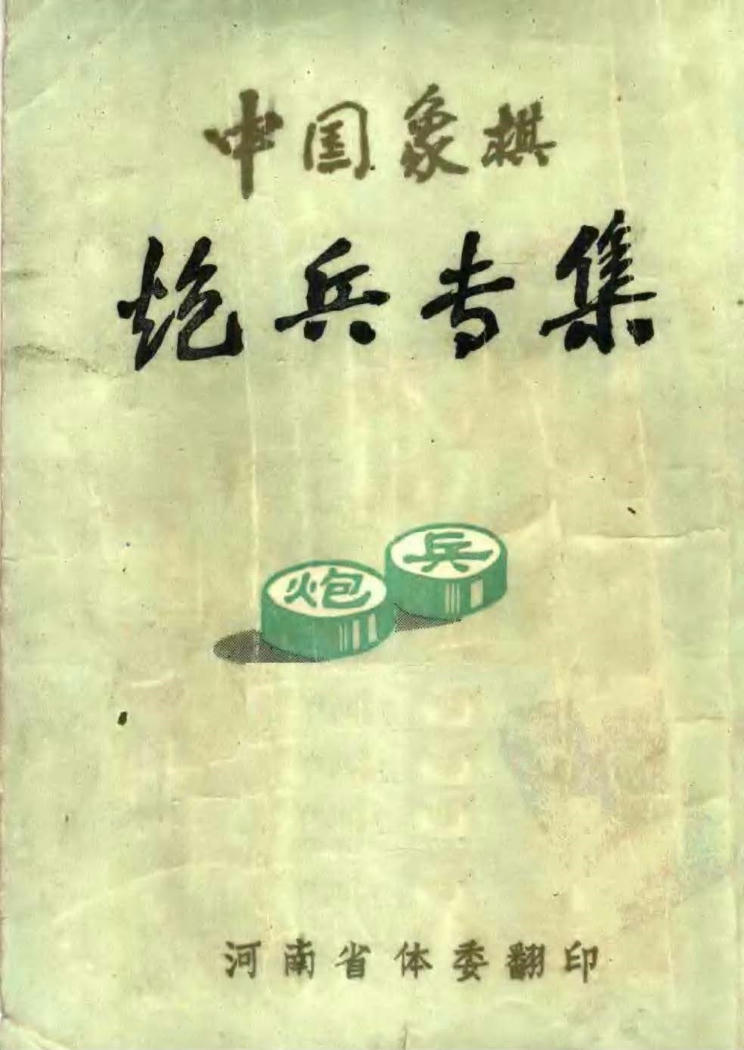 中国象棋
炮兵专集
炮
兵
河南省体委翻印